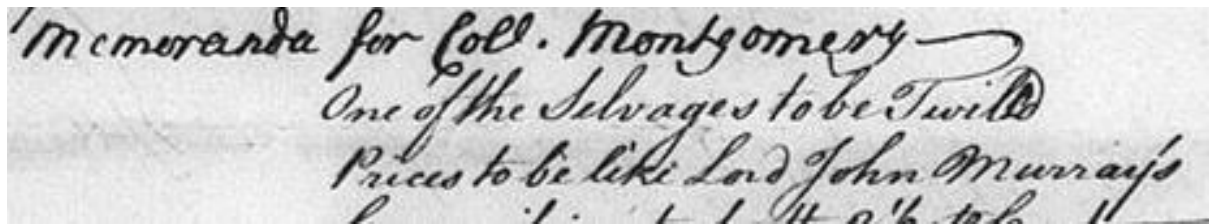 Memoranda for Coll. Montgomery
One of the Selvages to be Twilld
Prices to be like Lord John Murray's